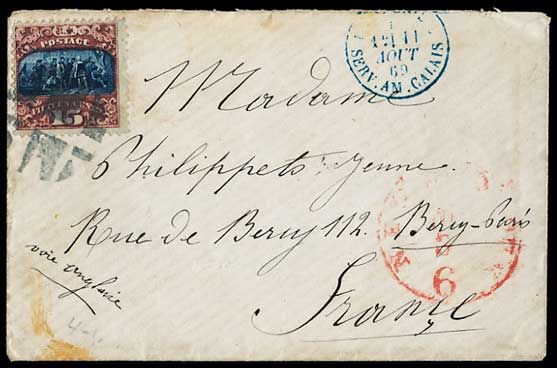 POSTAGE
15
11
AOUT
69
SERV. AM. CALAIS
Madame
Philippets Jeune
Rue de Bercy 112. Bercy-Paris
France
voie anglaise
6